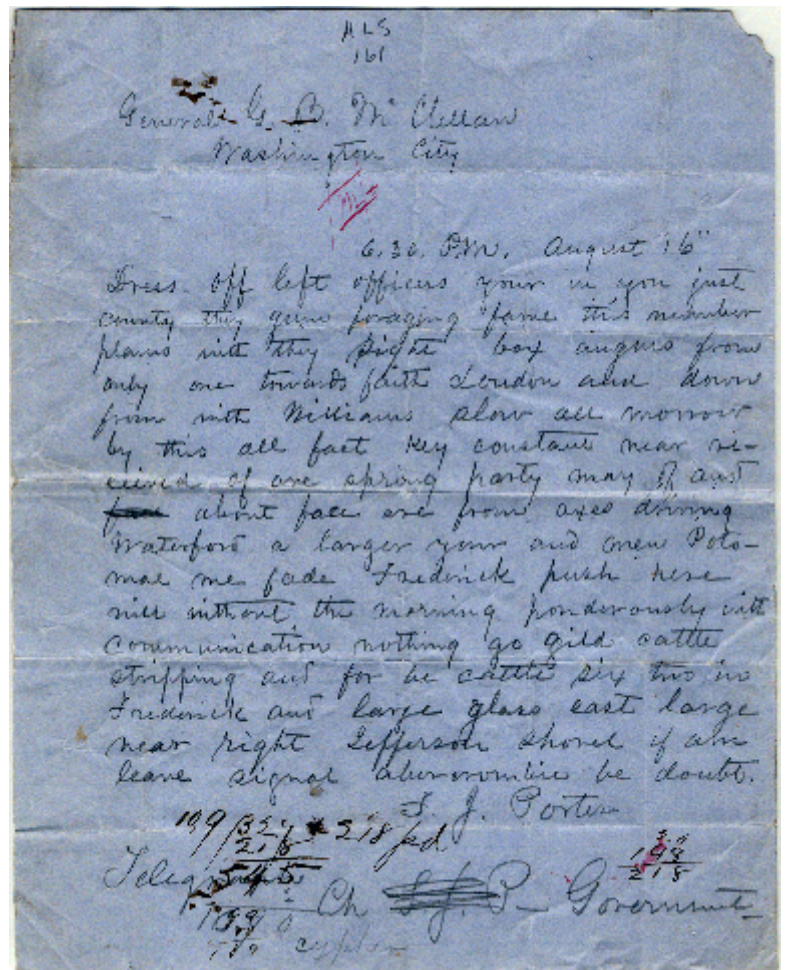 ALS
161
General G. B. McClellan
Washington City
6.30. P.M. August 16"
Dress off left officers your in you just
county they gune foraging fame this number
plans with they sight box angus from
only one towards faith Loudon and down
from with Williams slow all morrow
by this all fact Key constant near re-
ceived of are spring party may of and
about face are from axes driving
Waterford a larger your and men Poto-
mac me fade Frederick push here
will without the morning ponderously with
communication nothing go gild cattle
stripping and for be cattle six two in
Frederick and large glass east large
near right Jefferson shovel if am
leave signal abercrombie be doubt.
F. J. Porter
109 218 pd
Telegraph
Ch P- Government
cypher
198
218